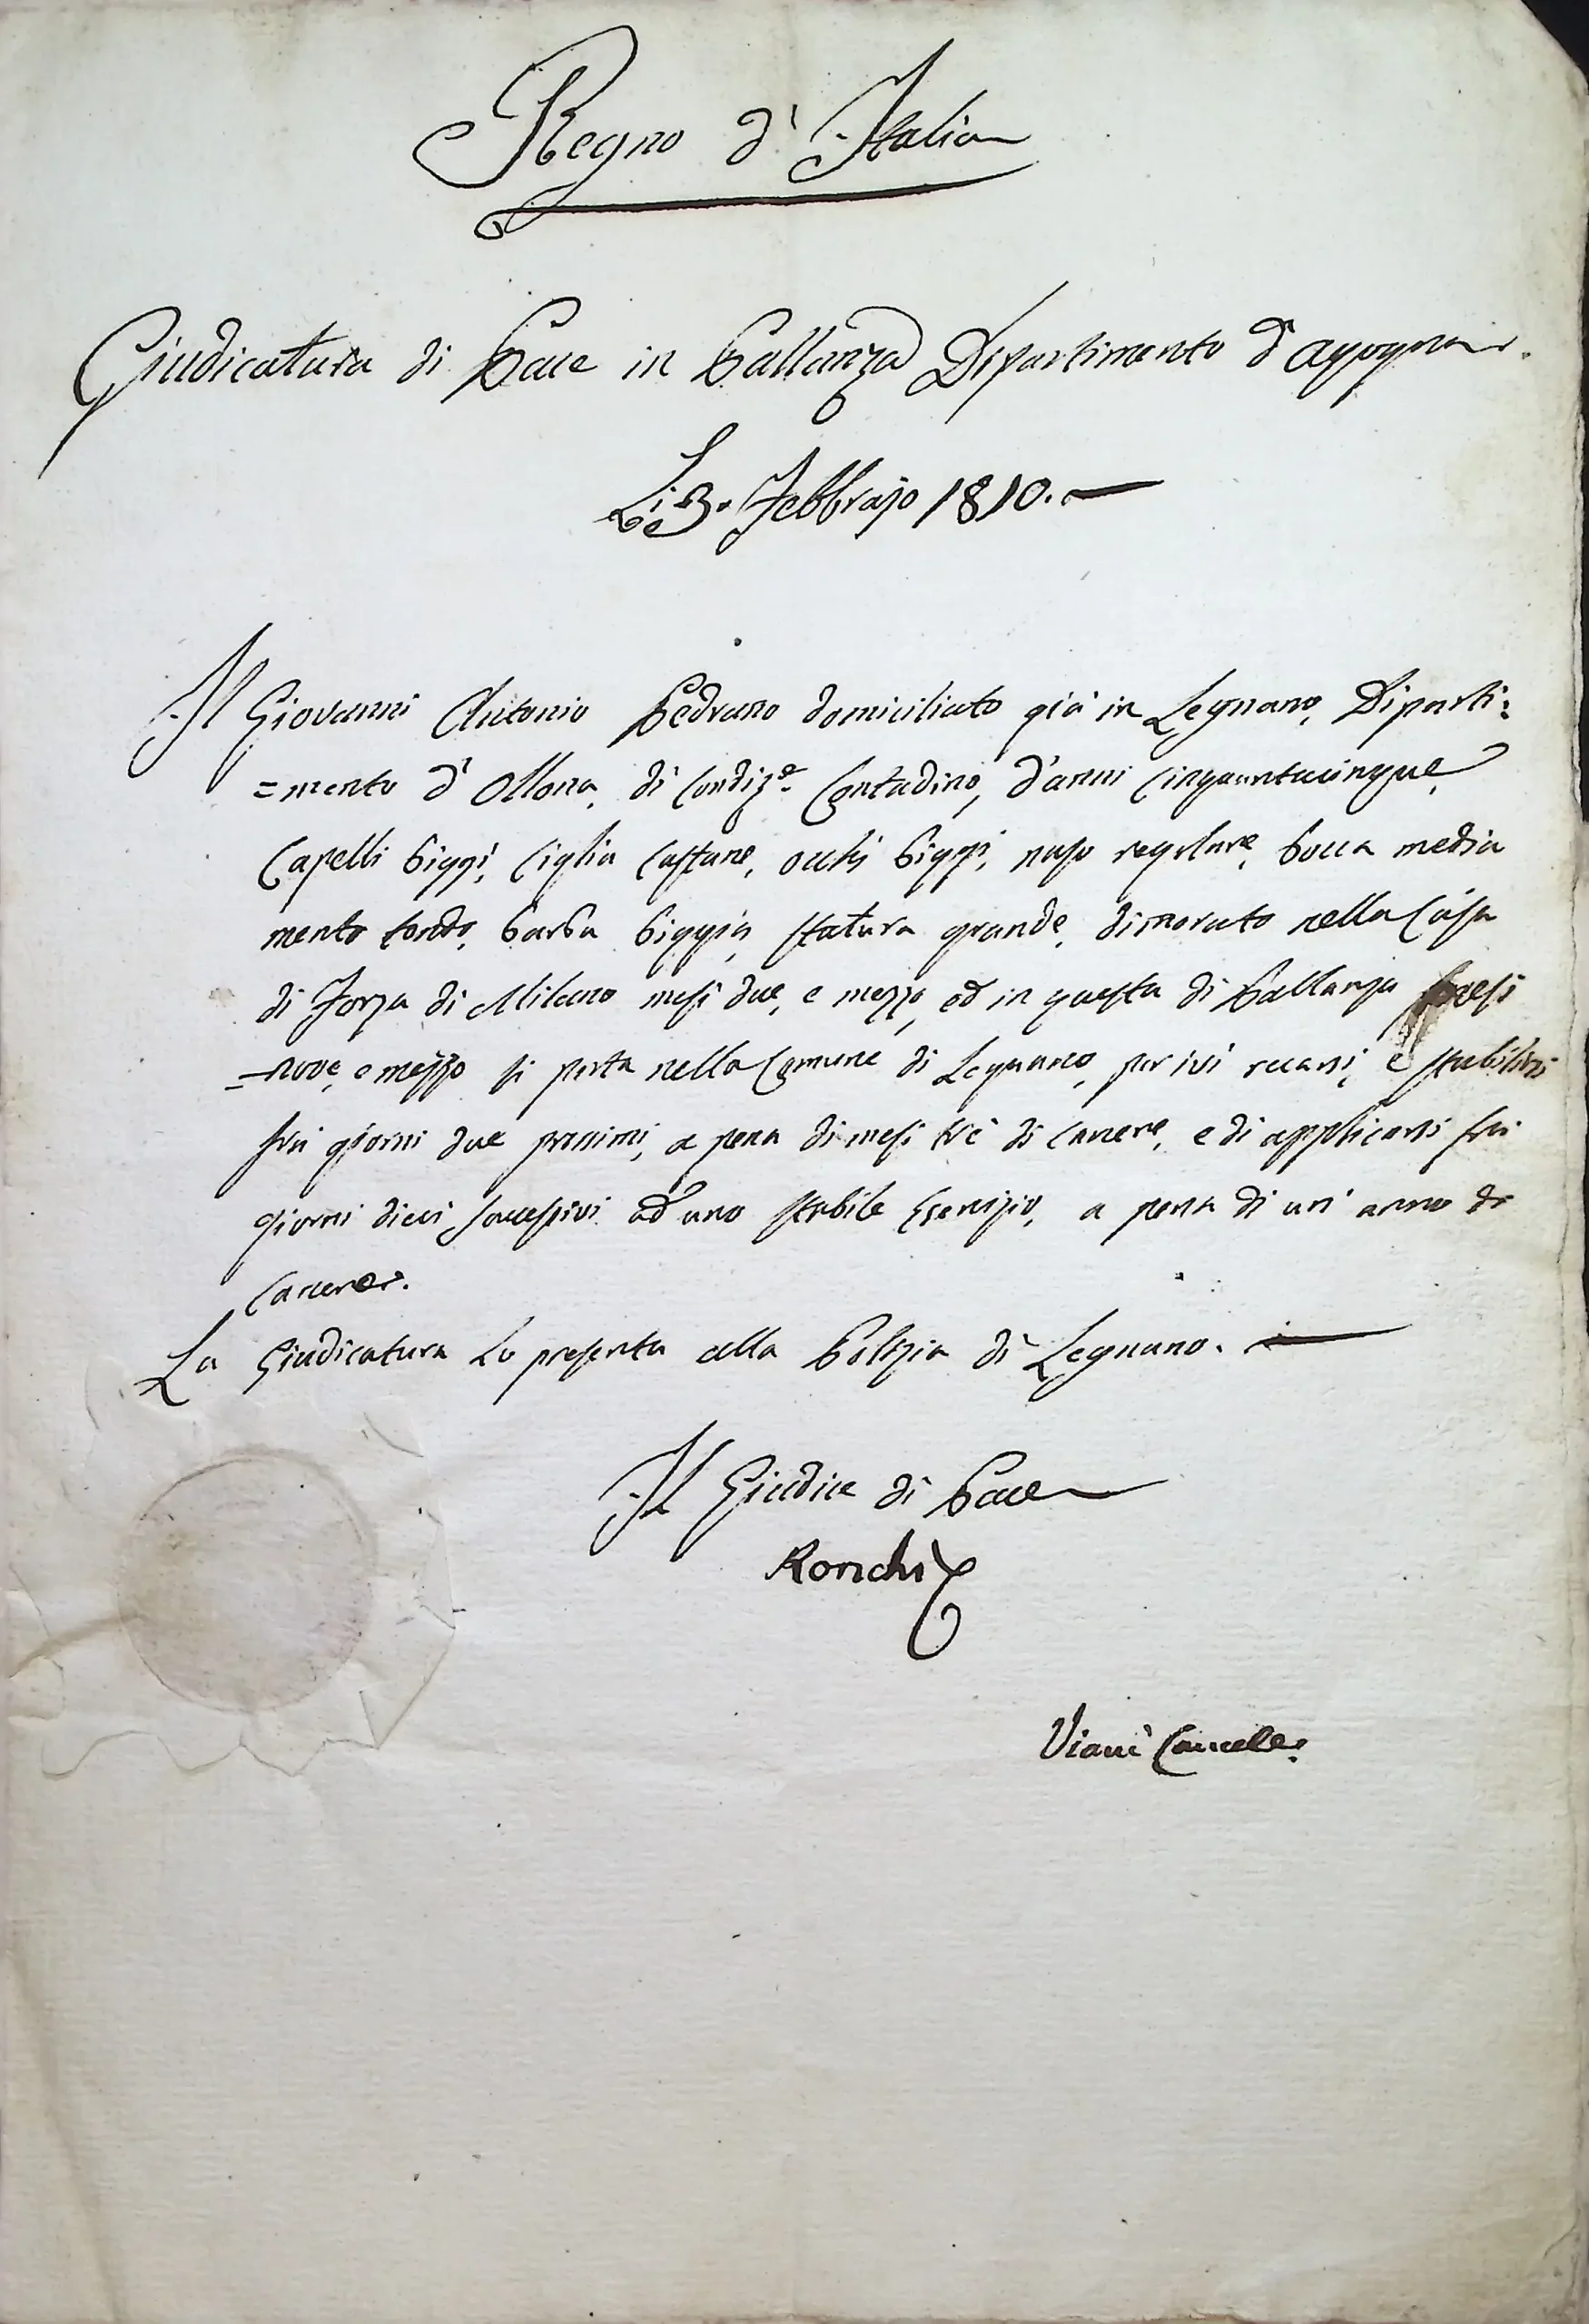 Regno d'Italia
Giudicatura di Pace in Pallanza Dipartimento d'agogna.
Li 3. Febbrajo 1810.
Il Giovanni Antonio Pedrano domiciliato già in Legnano, Diparti:
=mento d'Ollona, di Condiz.e Contadino, d'anni Cinquantacinque,
Capelli biggi, Ciglia Castane, occhi biggi, naso regolare, bocca media
mento tondo, barba biggia, statura grande, dimorato nella Casa
di Forza di Milano mesi due, e mezzo, ed in questa di Pallanza mesi
=nove, e mezzo si porta nella Comune di Legnano, per ivi recarsi, e stabilirsi
fra giorni due prossimi, a pena di mesi trè di Carcere, e di applicarsi fra
giorni dieci successivi ad uno stabile Esercizio, a pena di un'anno di
Carcere.
La Giudicatura Lo presenta alla Polizia di Legnano.
Il Giudice di Pace
Ronchi
Viani Cancele: